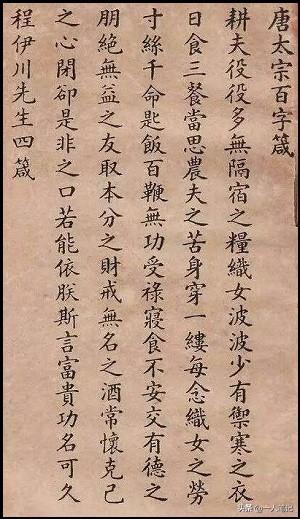 唐太宗百字箴
耕夫役役多無隔宿之糧織女波波少有禦寒之衣
日食三餐當思農夫之苦身穿一縷每念織女之勞
寸絲千命匙飯百鞭無功受祿寢食不安交有德之
朋絕無益之友取本分之財戒無名之酒常懷克己
之心閉卻是非之口若能依朕斯言富貴功名可久
程伊川先生四箴
头条 @一人笔记